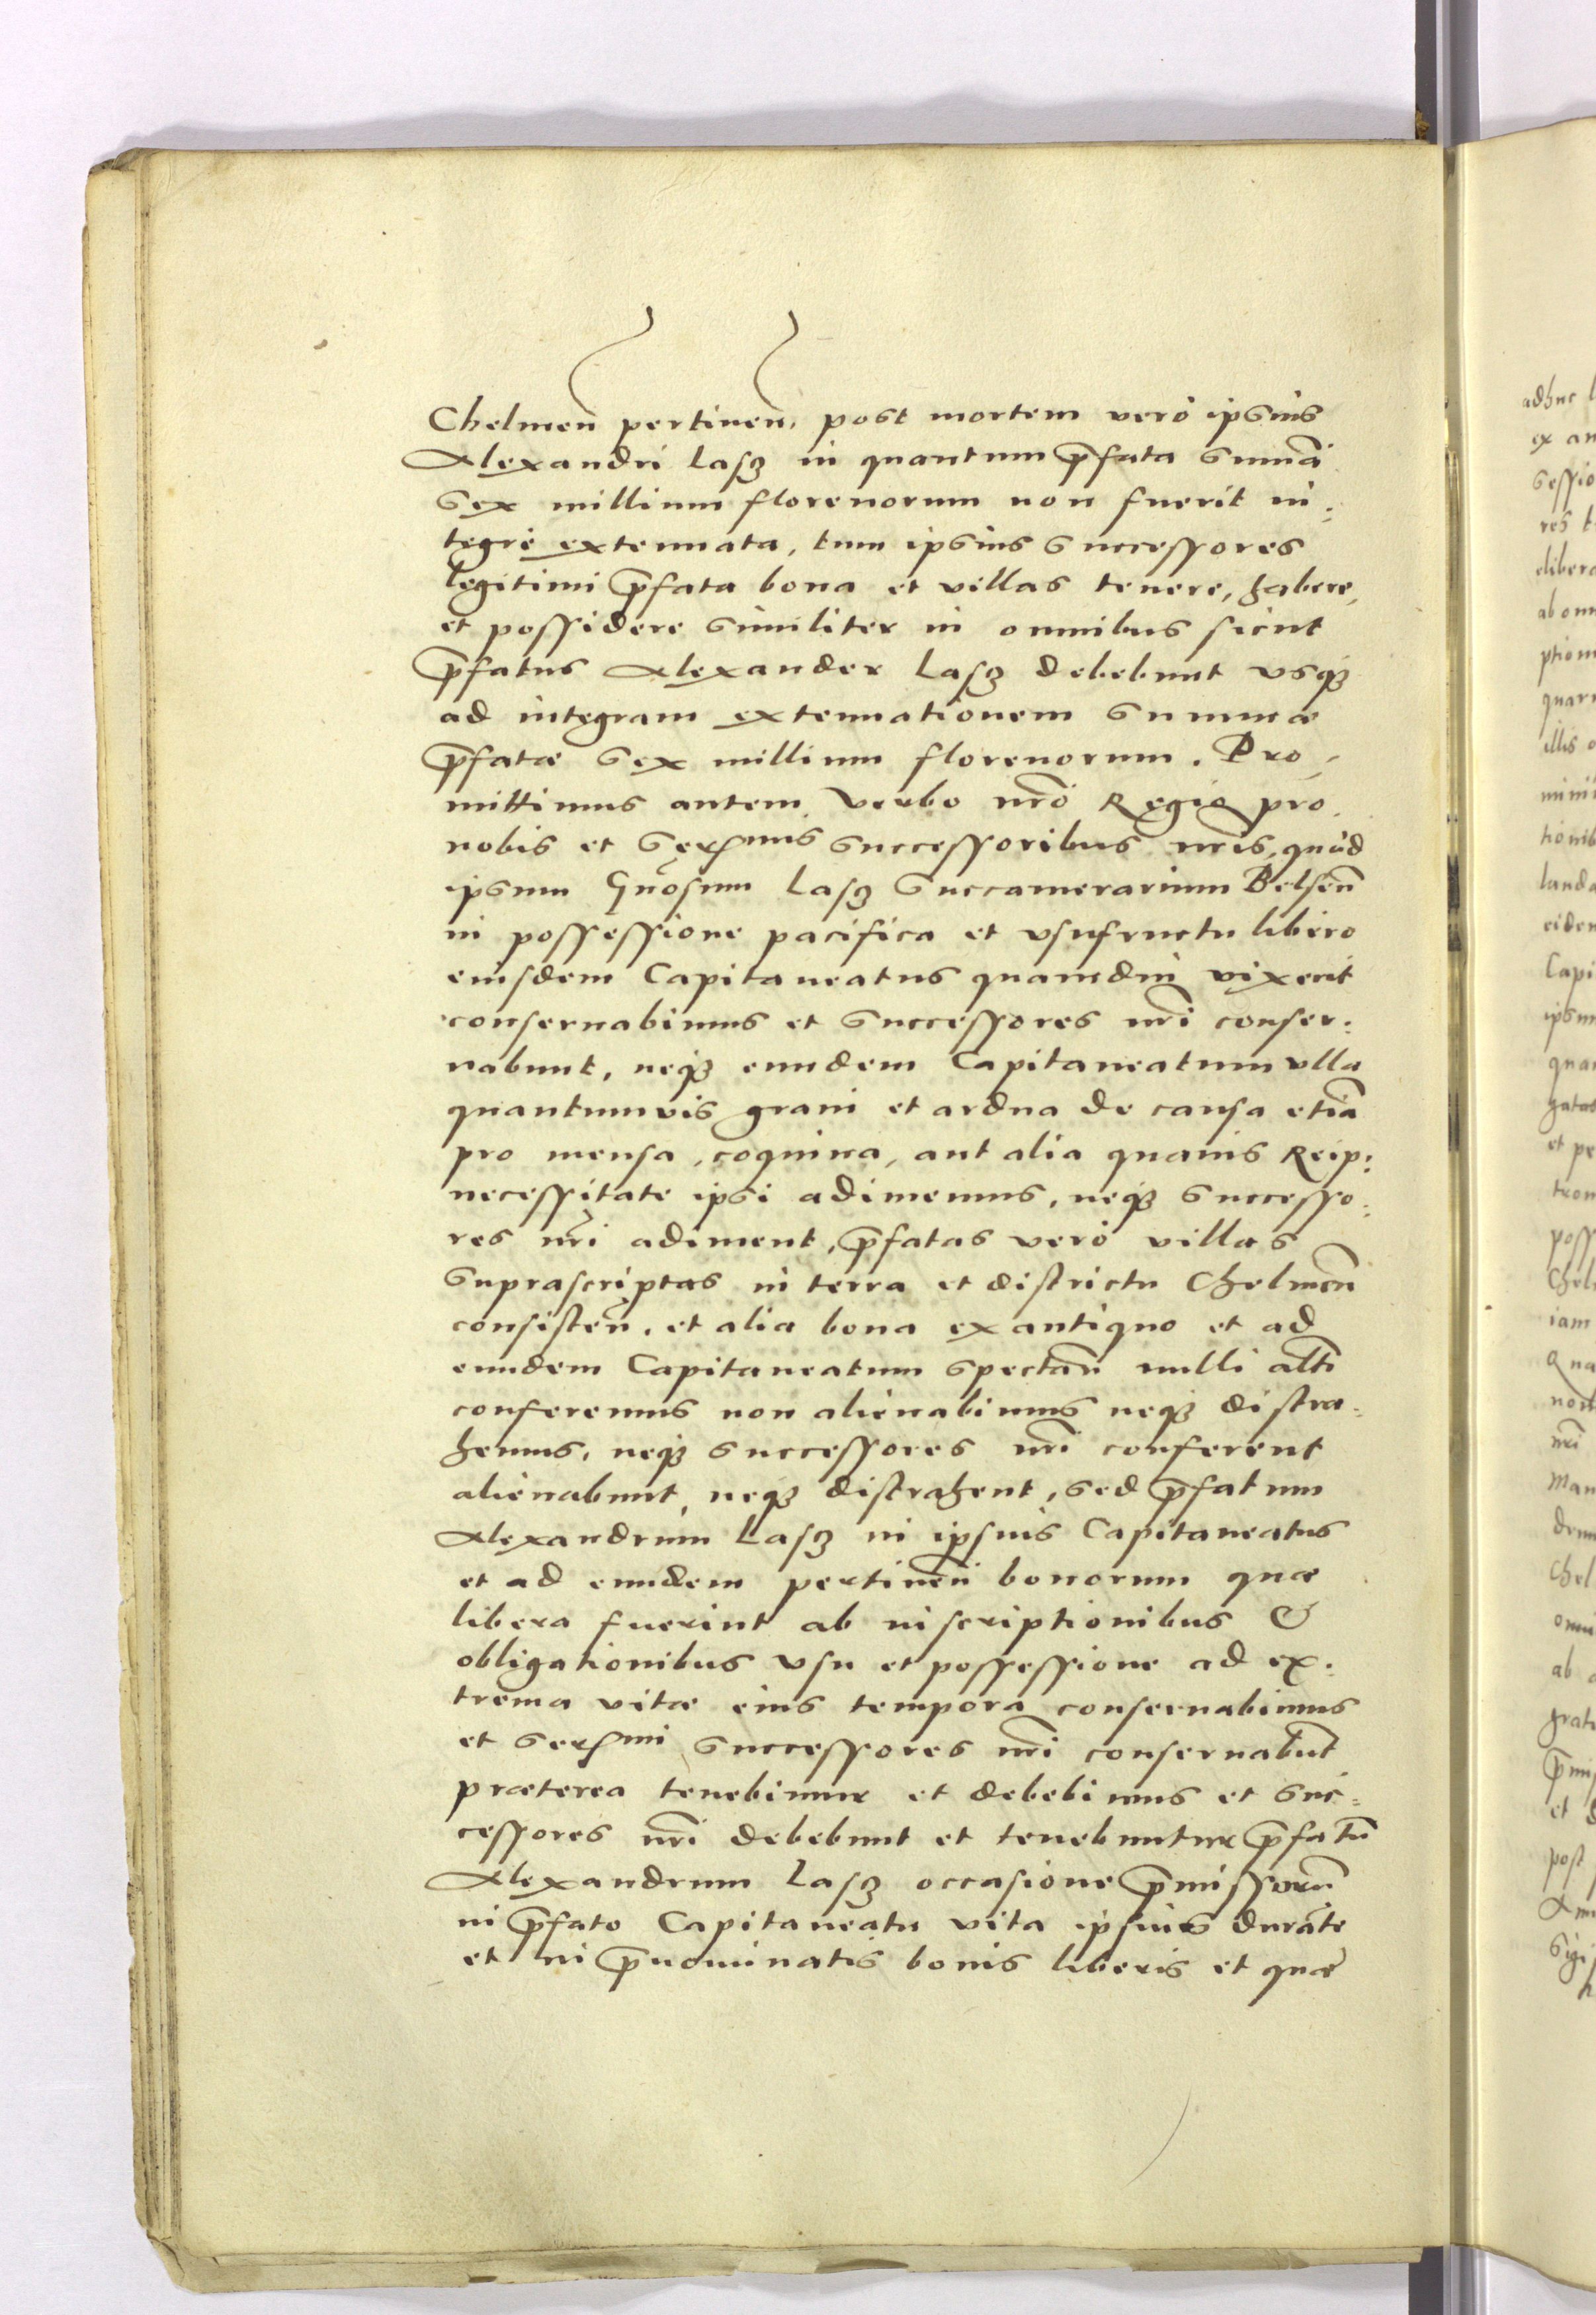 Chelmen̄ pertinen̄, post mortem verò ipsius
Alexandri Lasch in quantum p̄fata summā
sex millium florenorum non fuerit in:
tegrè extenuata, tum ipsius successores
legitimi p̄fata bona et villas tenere, habere,
et possidere similiter in omnibus sicut
p̄fatus Alexander Lasch debebunt vsq₃
ad integram extenuationem summæ
p̄fatæ sex millium florenorum. Pro:
mittimus autem verbo nr̄o Regio pro
nobis et serᵐⁱˢ successoribus nr̄is, quòd
ipsum Gn̄osum Lasch succamerarium Belsen̄
in possessione pacifica et vsufructu libero
eiusdem Capitaneatus quamdiu vixerit
conseruabimus et successores nr̄i conser:
uabunt, neq₃ eundem Capitaneatum vlla
quantumuis graui et ardua de causa etiā
pro mensa, coquina, aut alia quauis Reip:
necessitate ipsi adimemus, neq₃ successo:
res nr̄i adiment, p̄fatas verò villas
suprascriptas in terra et districtu Chelmen̄
consisten̄. et alia bona ex antiquo et ad
eundem Capitaneatum spectan̄ nulli altī
conferemus non alienabimus neq₃ distra:
hemus, neq₃ successores nr̄i conferent
alienabunt, neq₃ distrahent, sed p̄fatum
Alexandrum Lasch in ipsius Capitaneatus
et ad eundem pertinen̄ bonorum quæ
libera fuerint ab inscriptionibus &
obligationibus vsu et possessione ad ex:
trema vitæ eius tempora conseruabimus
et serᵐⁱ successores nr̄i conseruabūt
præterea tenebimur et debebimus et suc:
cessores nr̄i debebunt et tenebuntur p̄fatū
Alexandrum Lasch occasione p̄missorū
in p̄fato Capitaneatu vita ipsius durāte
et in p̄nominatis bonis liberis et quæ